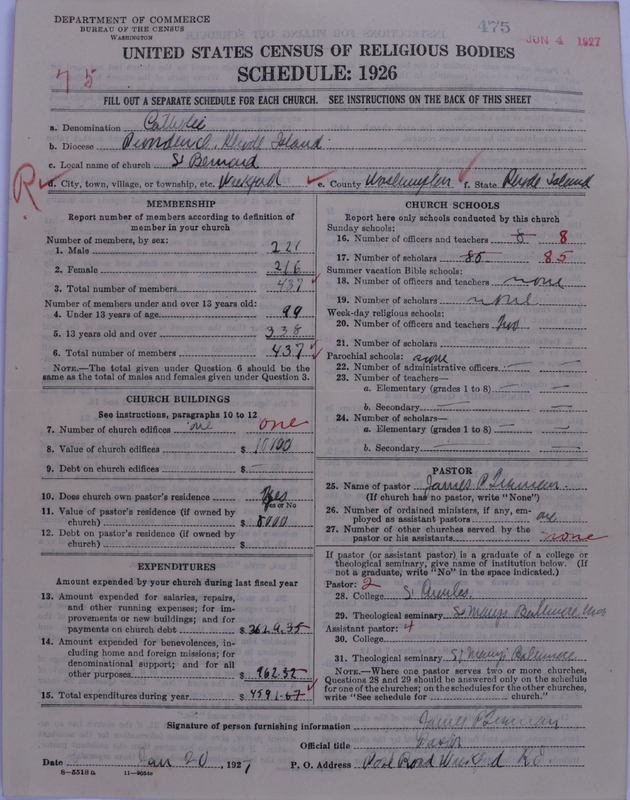 DEPARTMENT OF COMMERCE
BUREAU OF THE CENSUS
WASHINGTON
475
JUN 4 1927
UNITED STATES CENSUS OF RELIGIOUS BODIES
SCHEDULE: 1926
75
FILL OUT A SEPARATE SCHEDULE FOR EACH CHURCH. SEE INSTRUCTIONS ON THE BACK OF THIS SHEET
a. Denomination Catholic
b. Diocese Providence, Rhode Island
c. Local name of church St Bernard
R
d. City, town, village, or township, etc. Wickford e. County Washington f. State Rhode Island
MEMBERSHIP
Report number of members according to definition of
member in your church
Number of members, by sex:
1. Male 221
2. Female 216
3. Total number of members 437
Number of members under and over 13 years old:
4. Under 13 years of age 99
5. 13 years old and over 338
6. Total number of members 437
NOTE.—The total given under Question 6 should be
same as the total of males and females given under Question 3.
CHURCH BUILDINGS
See instructions, paragraphs 10 to 12
7. Number of church edifices one one
8. Value of church edifices $
9. Debt on church edifices $ —
10. Does church own pastor's residence Yes
Yes or No
11. Value of pastor's residence (if owned by
church) $ 8000
12. Debt on pastor's residence (if owned by
church) $
EXPENDITURES
Amount expended by your church during last fiscal year
13. Amount expended for salaries, repairs,
and other running expenses; for im-
provements or new buildings; and for
payments on church debt $ 3629.35
14. Amount expended for benevolences, in-
cluding home and foreign missions; for
denominational support; and for all
other purposes $ 962.32
15. Total expenditures during year $ 4591.67
CHURCH SCHOOLS
Report here only schools conducted by this church
Sunday schools:
16. Number of officers and teachers 8 8
17. Number of scholars 85 85
Summer vacation Bible schools:
18. Number of officers and teachers none
19. Number of scholars none
Week-day religious schools:
20. Number of officers and teachers
21. Number of scholars
Parochial schools: none
22. Number of administrative officers — —
23. Number of teachers—
a. Elementary (grades 1 to 8) — —
b. Secondary — —
24. Number of scholars—
a. Elementary (grades 1 to 8) — —
b. Secondary — —
PASTOR
25. Name of pastor James P.
(If church has no pastor, write "None")
26. Number of ordained ministers, if any, em-
ployed as assistant pastors one
27. Number of other churches served by the
pastor or his assistants none
If pastor (or assistant pastor) is a graduate of a college or
theological seminary, give name of institution below. (If
not a graduate, write "No" in the space indicated.)
Pastor: 2
28. College St Charles
29. Theological seminary St Marys Baltimore
Assistant pastor: 4
30. College
31. Theological seminary St Marys Baltimore
NOTE.—Where one pastor serves two or more churches,
Questions 28 and 29 should be answered only on the schedule
for one of the churches; on the schedules for the other churches,
write "See schedule for church."
Signature of person furnishing information James P
Official title Pastor
Date Jan 20, 1927 P. O. Address Post Road Wickford R.I.
8—5518a 11—9654a